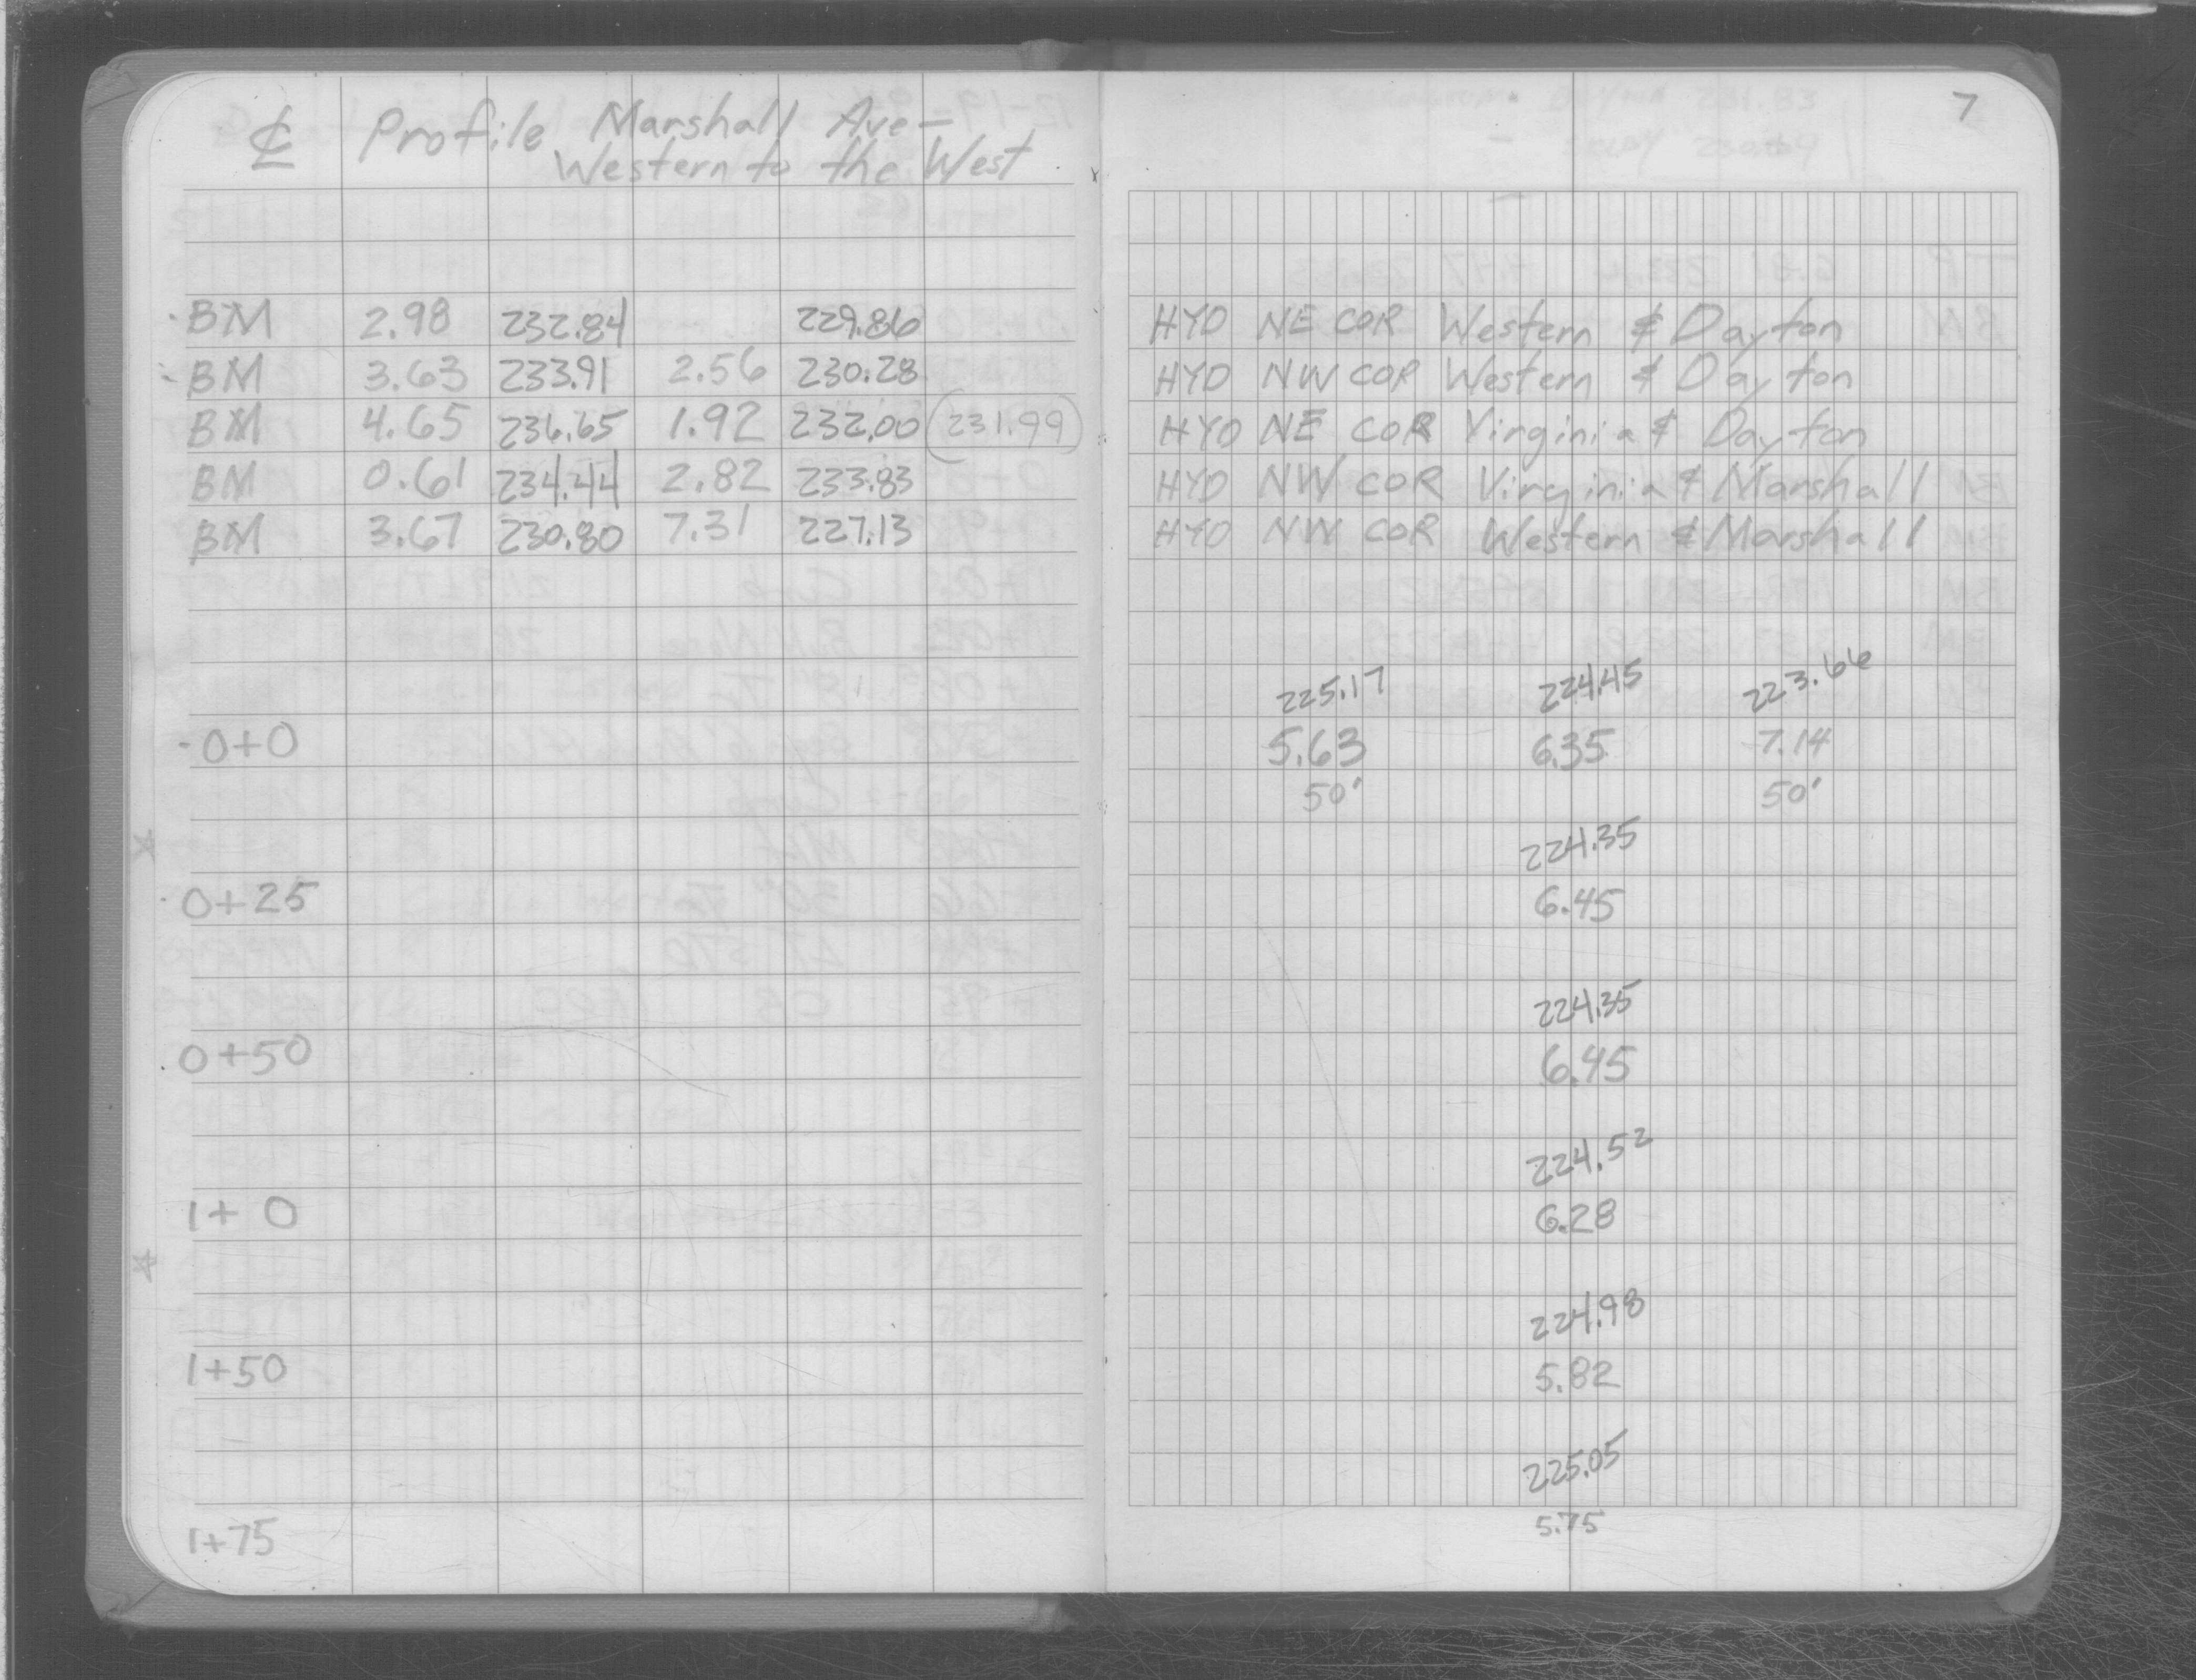 ℄ Profile Marshall Ave-
Western to the West
7
BM 2.98 232.84 229.86 HYD NE COR Western & Dayton
BM 3.63 233.91 2.56 230.28 HYD NW COR Western & Dayton
BM 4.65 236.65 1.92 232.00 (231.99) HYD NE COR Virginia & Dayton
BM 0.61 234.44 2.82 233.83 HYD NW COR Virginia & Marshall
BM 3.67 230.80 7.31 227.13 HYD NW COR Western & Marshall
225.17 224.45 223.66
0+0 5.63 6.35 7.14
50' 50'
224.35
0+25 6.45
224.35
0+50 6.45
224.52
1+0 6.28
224.98
1+50 5.82
225.05
1+75 5.75